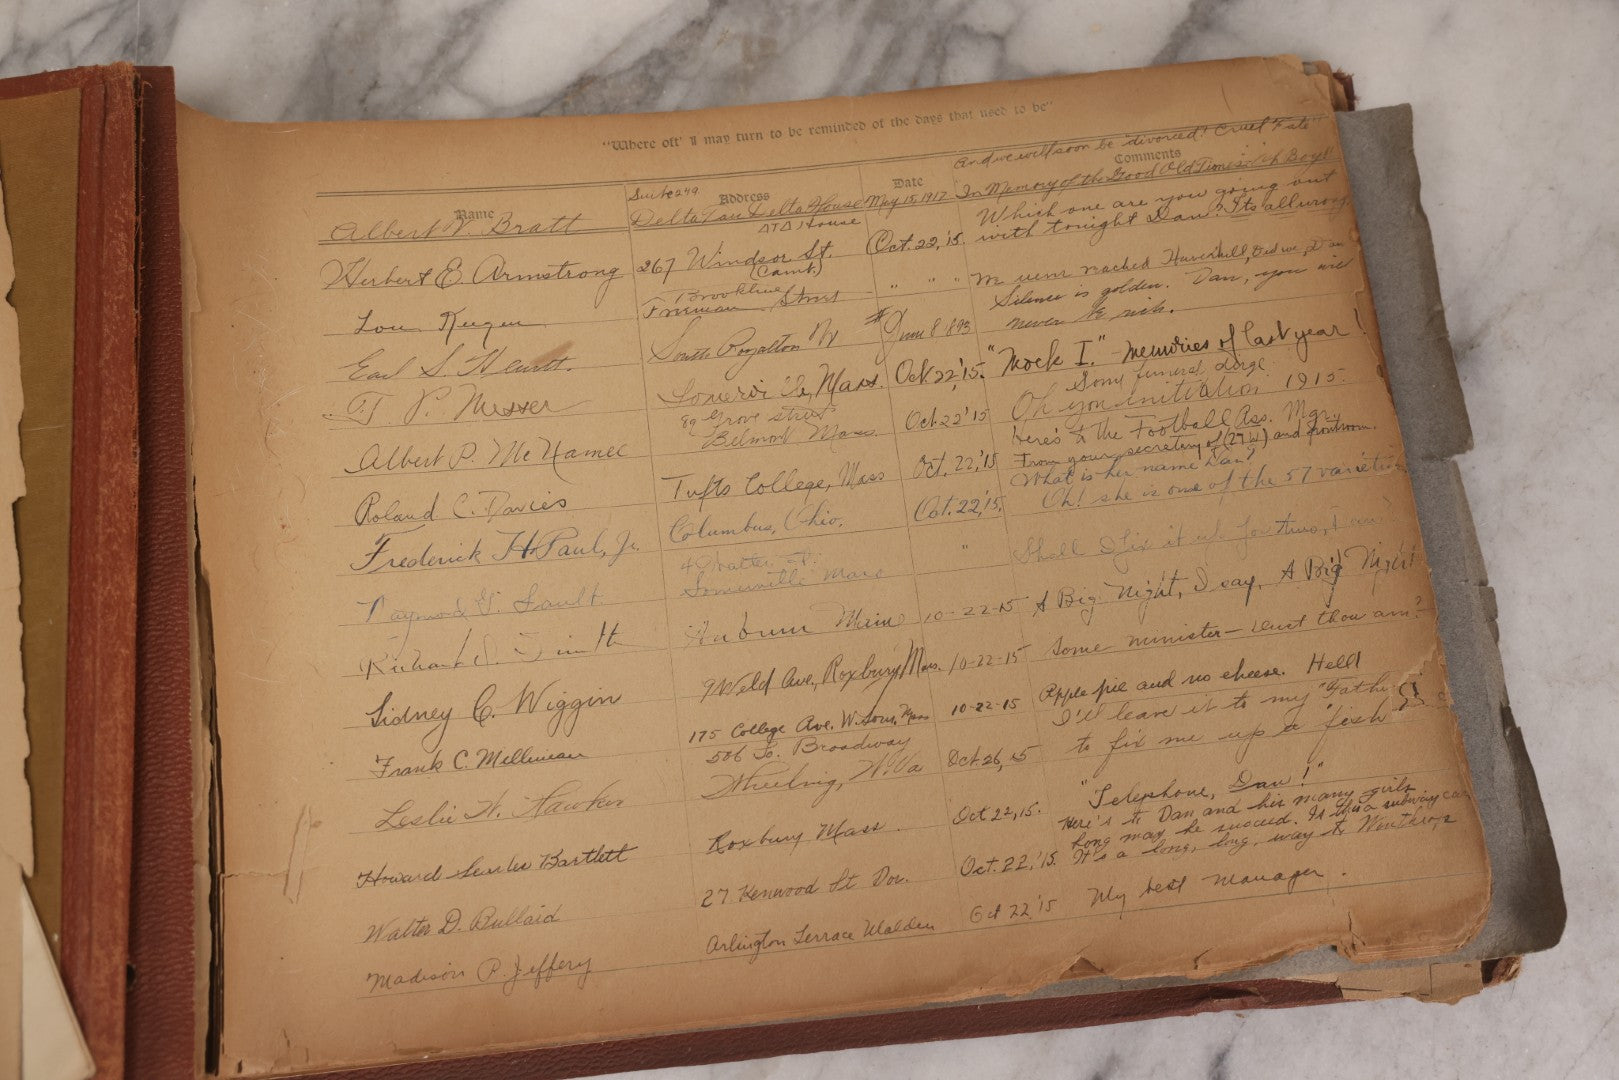 "Where oft' I may turn to be reminded of the days that used to be"
And we will soon be "divorced! Cruel Fate"
Name Address Date Comments
Suite 249
Albert V. Bratt Delta Tau Delta House May 15, 1917 In Memory of the Good Old Times Oh Boy!!
ΔΤΔ House
Which one are you going out
Herbert E. Armstrong 267 Windsor St. Oct. 22, '15. with tonight Dan? Its alluring.
(Camb.)
Lou Brookline " " " reached Haverhill, Did we, Dan
Freeman Street
Silence is golden. Dan, you will
Earl S. South Royalton June 8 1893 never be rich.
T. P. Messer Mass. Oct 22, '15. "Mock I." - Memories of last year!
Some funeral dirge.
Albert P. McNamee 89 Grove street Oct. 22 '15 Oh you initiation 1915.
Belmont Mass.
Here's to the Football Ass. Mgr.
Roland C. Davies Tufts College, Mass Oct. 22, '15 From your secretary of (27 W) and frontroom.
What is her name Dan?
Frederick H. Paul, Jr. Columbus, Ohio. Oct. 22, '15. Oh! she is one of the 57 varieties
Somerville Mass " Shall I fix it up for two,
Richard Auburn Maine 10-22-15 A Big Night, I say, A Big Night
Sidney C. Wiggin 9 Weld Ave, Roxbury, Mass. 10-22-15 Some minister— Dust thou am?
Frank C. Milliman 175 College Ave. W. Som. Mass 10-22-15 Apple pie and no cheese. Hell!
506 So. Broadway I'll leave it to my "Father
Leslie W. Hawker Wheeling, W. Va Oct 26, 15 to fix me up a
Howard Bartlett Roxbury Mass. Oct 22, 15. "Telephone, Dan!"
Here's to Dan and his many girls
Long may he succeed. Is this a subway car
Walter D. Bullard 27 Kenwood St Dor. Oct. 22, '15. It's a long, long, way to Winthrop
Madison P. Jeffery Arlington Terrace Malden Oct 22 '15 My best manager.